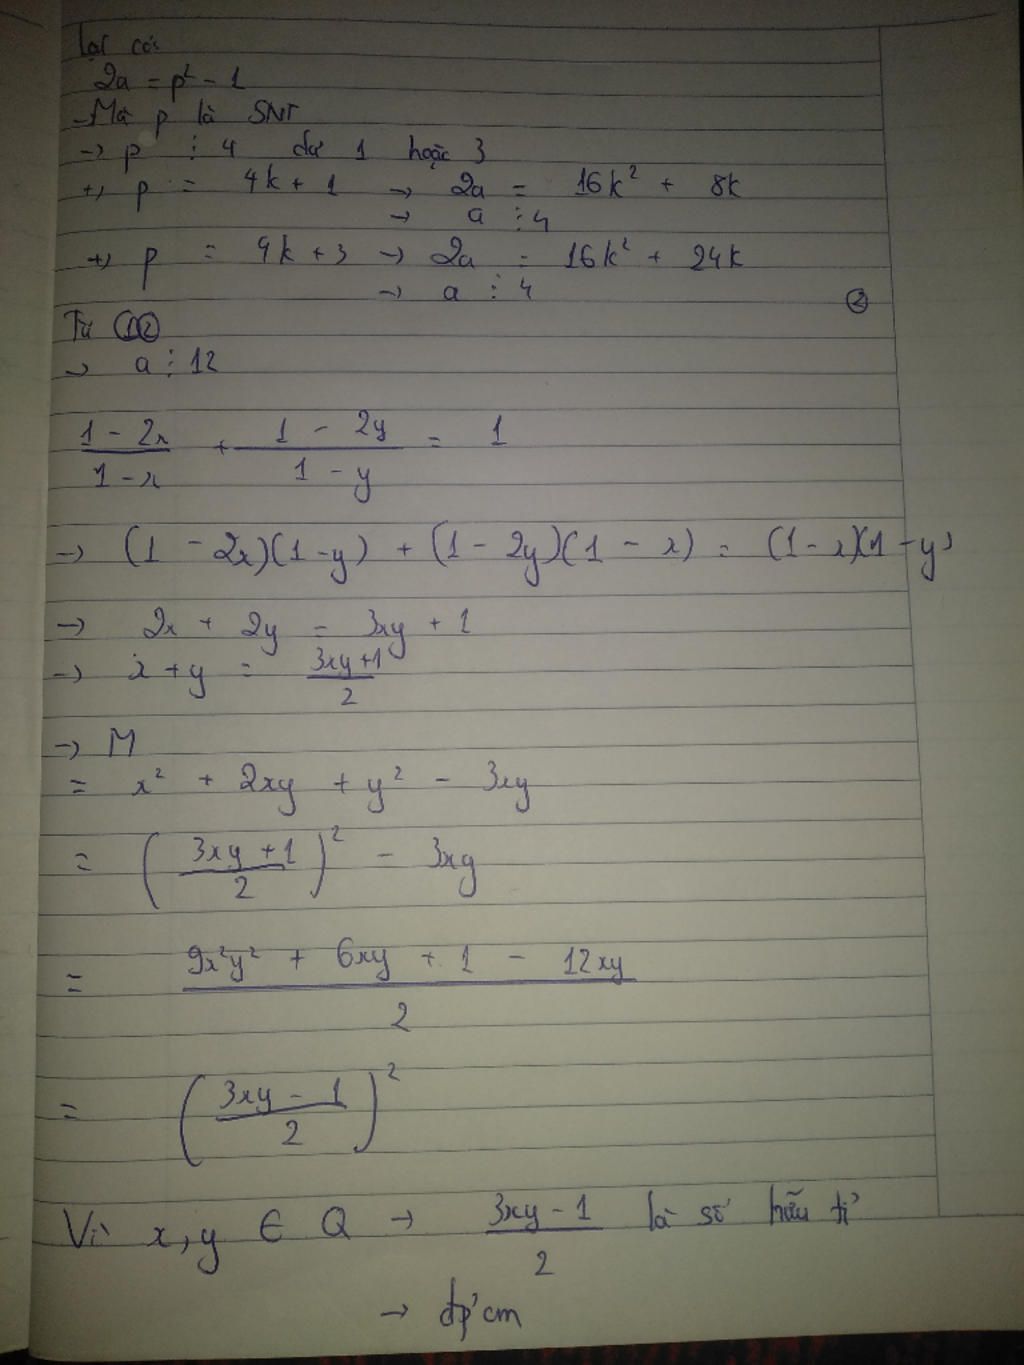 Lại có:
2a = p² - 1
- Mà p là SNT
→ p ⋮ 4 dư 1 hoặc 3
+, p = 4k + 1 → 2a = 16k² + 8k
→ a ⋮ 4
+, p = 4k + 3 → 2a = 16k² + 24k
→ a ⋮ 4 ②
Từ ①②
→ a ⋮ 12
(1 - 2x)/(1 - x) + (1 - 2y)/(1 - y) = 1
→ (1 - 2x)(1 - y) + (1 - 2y)(1 - x) = (1 - x)(1 - y)
→ 2x + 2y = 3xy + 1
→ x + y = (3xy + 1)/2
→ M
= x² + 2xy + y² - 3xy
= ((3xy + 1)/2)² - 3xy
= (9x²y² + 6xy + 1 - 12xy)/2
= ((3xy - 1)/2)²
Vì x, y ∈ Q → (3xy - 1)/2 là số hữu tỉ
→ đpcm